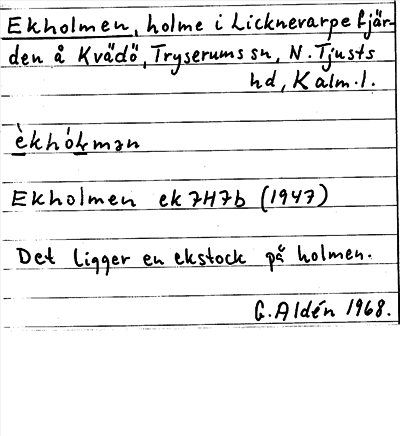 Ekholmen, holme i Licknevarpefjär-
den å Kvädö, Tryserums sn, N. Tjusts
hd, Kalm. l.
èkhóɫmən
Ekholmen ek 7H7b (1947)
Det ligger en ekstock på holmen.
G. Aldén 1968.